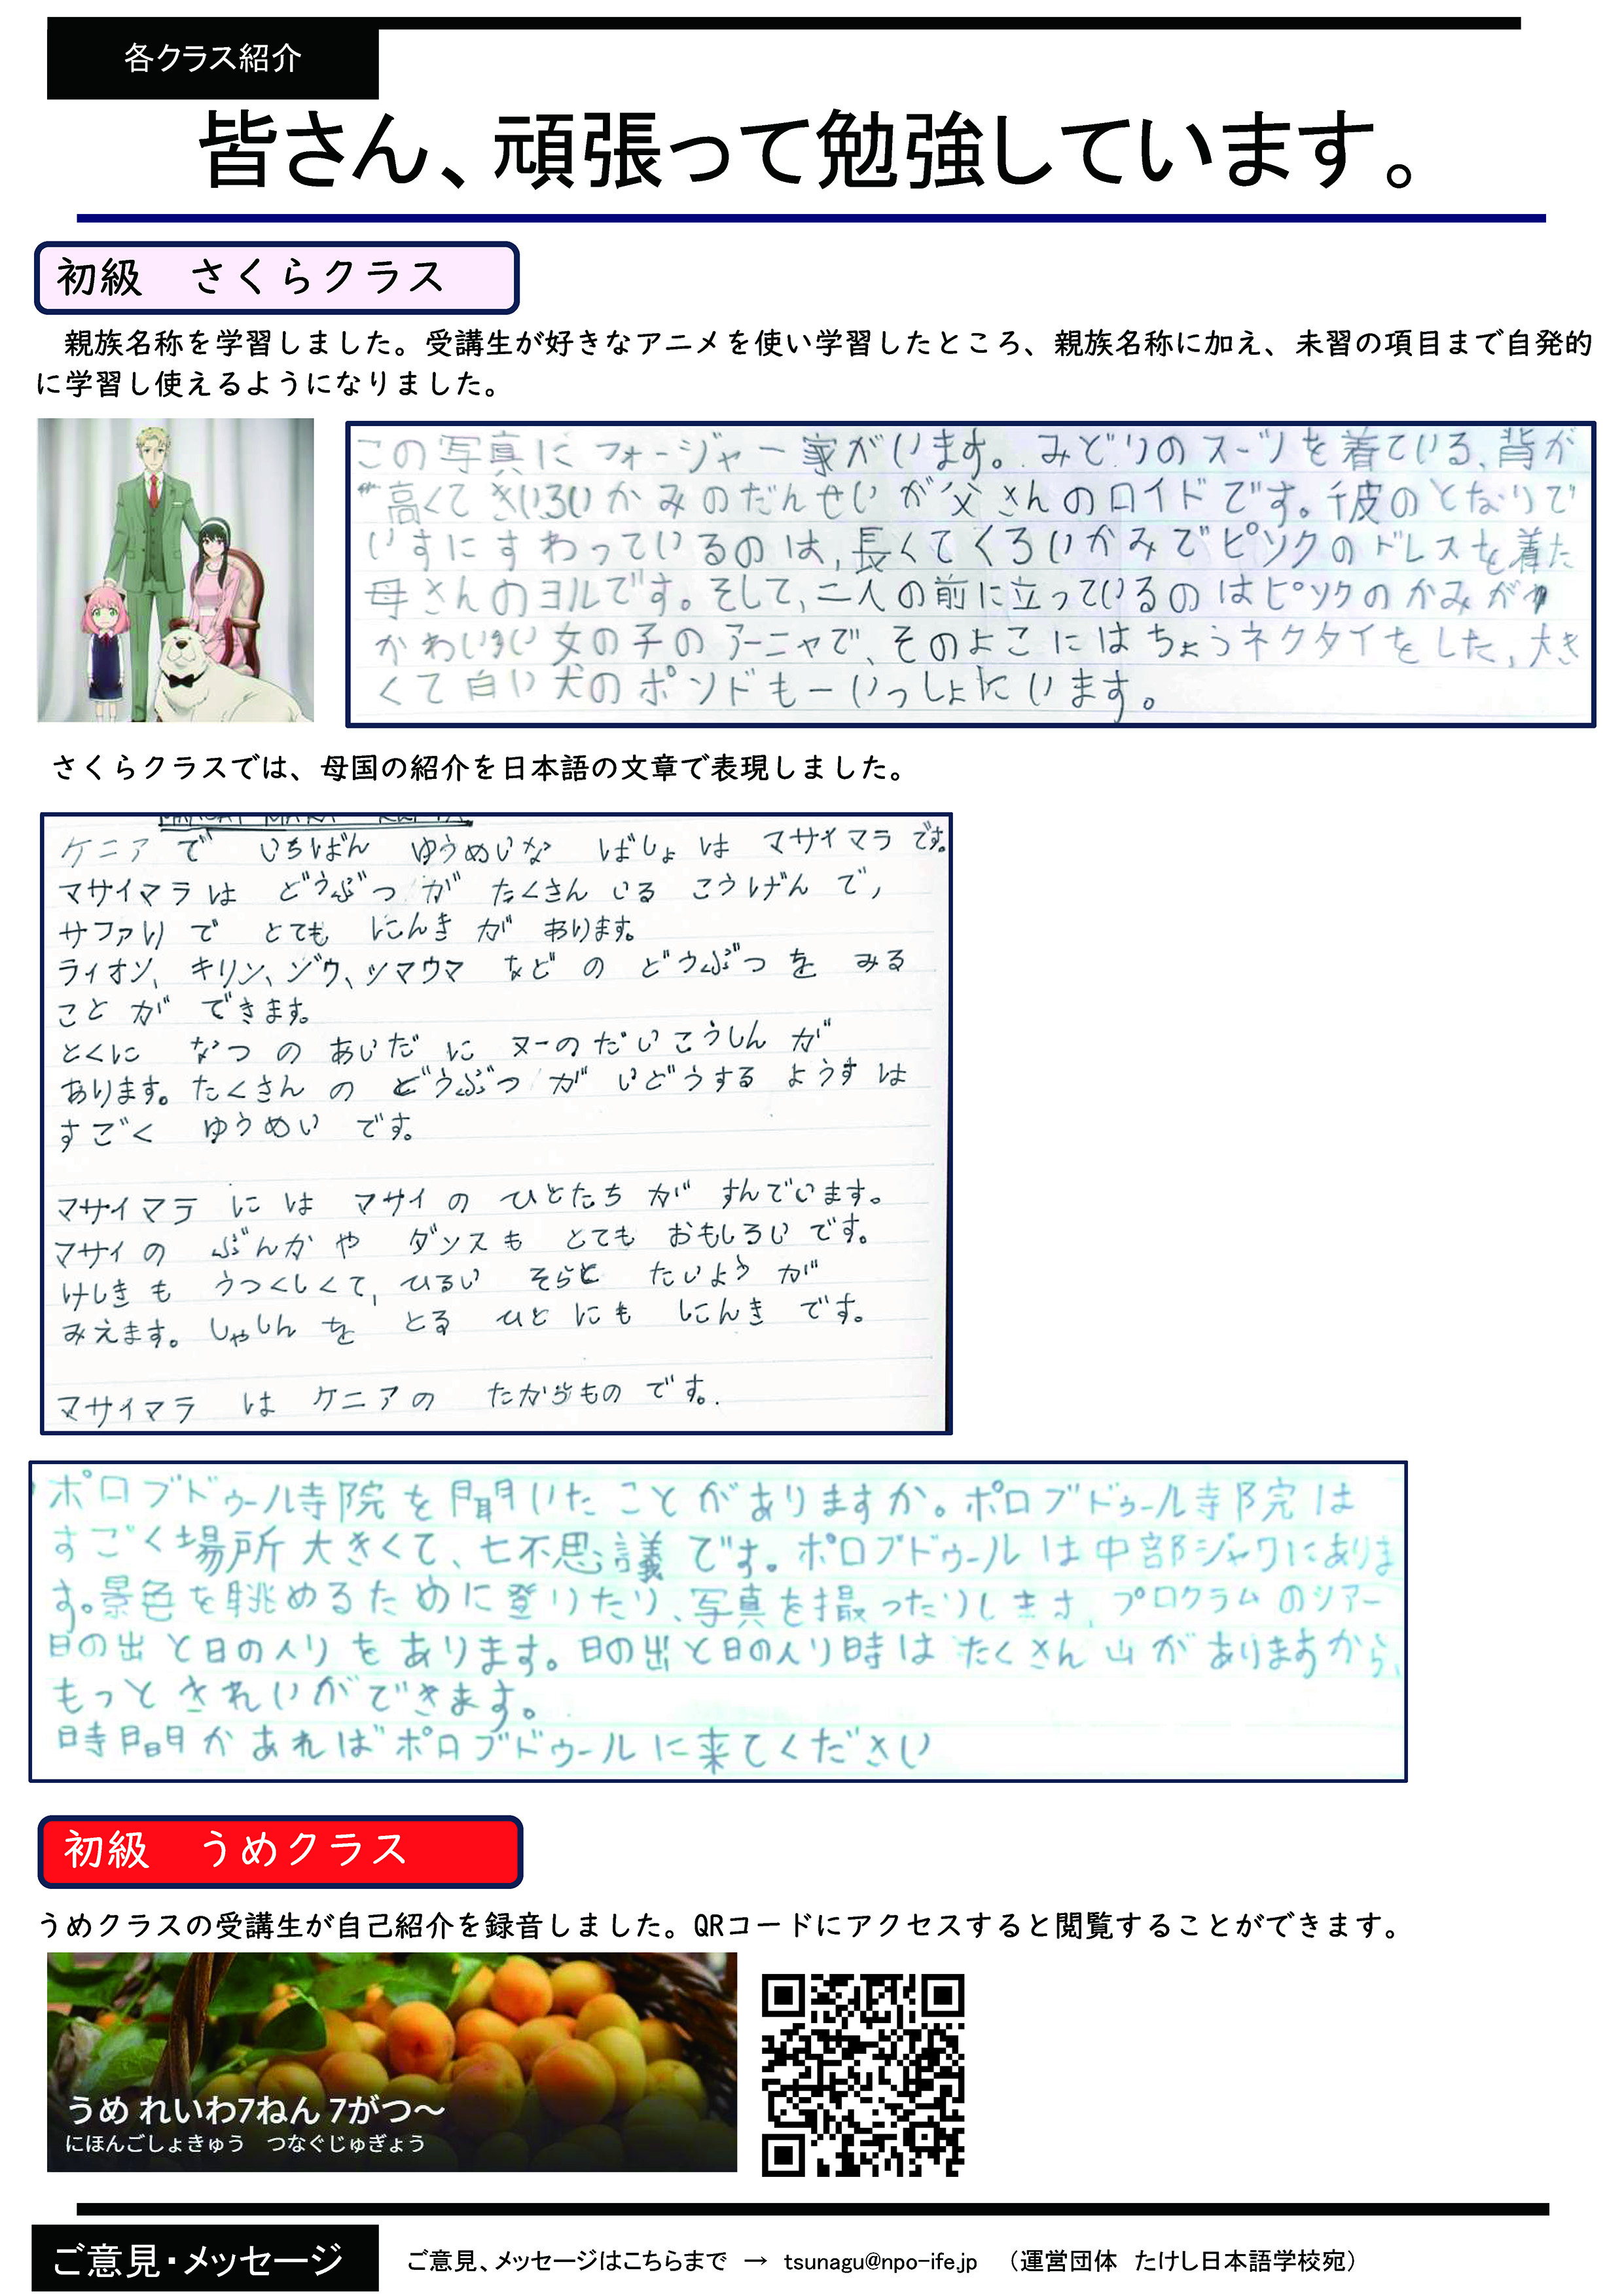 各クラス紹介
皆さん、頑張って勉強しています。
初級　さくらクラス
親族名称を学習しました。受講生が好きなアニメを使い学習したところ、親族名称に加え、未習の項目まで自発的
に学習し使えるようになりました。
この写真に フォージャー家がいます。みどりのスーツを着ている、背が
高くて きいろいかみのだんせいが父さんのロイドです。彼のとなりで
いすにすわっているのは、長くてくろいかみでピンクのドレスを着た
母さんのヨルです。そして、二人の前に立っているのはピンクのかみが
かわいい女の子のアーニャで、そのよこにはちょうネクタイをした、大き
くて白い犬のボンドもーいっしょにいます。
さくらクラスでは、母国の紹介を日本語の文章で表現しました。
ケニア で いちばん ゆうめいな ばしょ は マサイマラ です。
マサイマラ は どうぶつ が たくさん いる こうげん で,
サファリ で とても にんき が あります。
ライオン、キリン、ゾウ、シマウマ など の どうぶつ を みる
こと が できます。
とくに なつ の あいだ に ヌーのだいこうしん が
あります。たくさん の どうぶつ が いどうする ようす は
すごく ゆうめい です。
マサイマラ に は マサイ の ひとたち が すんでいます。
マサイ の ぶんか や ダンス も とても おもしろい です。
けしき も うつくしくて, ひるい そらと たいよう が
みえます。しゃしん を とる ひと に も にんき です。
マサイマラ は ケニア の たからもの です。
ボロブドゥール寺院を聞いたことがありますか。ボロブドゥール寺院は
すごく場所大きくて、七不思議です。ボロブドゥールは中部ジャワにありま
す。景色を眺めるために登りたり、写真を撮ったりします、プログラムのツアー
日の出と日の入りをあります。日の出と日の入り時はたくさん山がありますから、
もっときれいができます。
時間があればボロブドゥールに来てください
初級　うめクラス
うめクラスの受講生が自己紹介を録音しました。QRコードにアクセスすると閲覧することができます。
うめ れいわ7ねん 7がつ～
にほんごしょきゅう　つなぐじゅぎょう
ご意見・メッセージ
ご意見、メッセージはこちらまで　→　tsunagu@npo-ife.jp　（運営団体　たけし日本語学校宛）